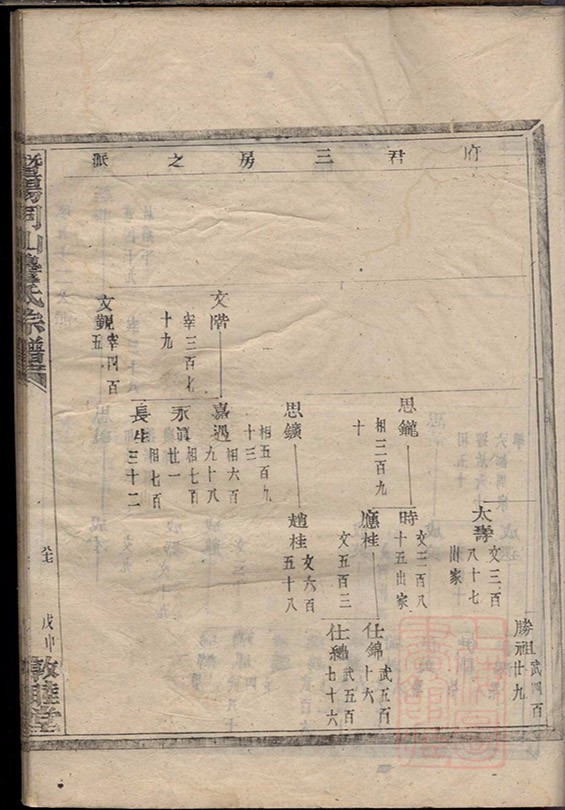 府君三房之派
勝祖 武四百廿九
太壽 文三百八十七出家
思鑨 相三百九十
時 文三百八十五出家
應桂 文五百三
仕錦 武五百十六
仕穗 武五百七十六
思鑛 相五百九十三
趙桂 文六百五十八
文階 宰三百七十九
嘉遇 相六百九十八
永眞 相七百廿一
長生 相七百三十二
文觀 宰四百五
暨陽同山邊氏宗譜
戊申
敦睦堂